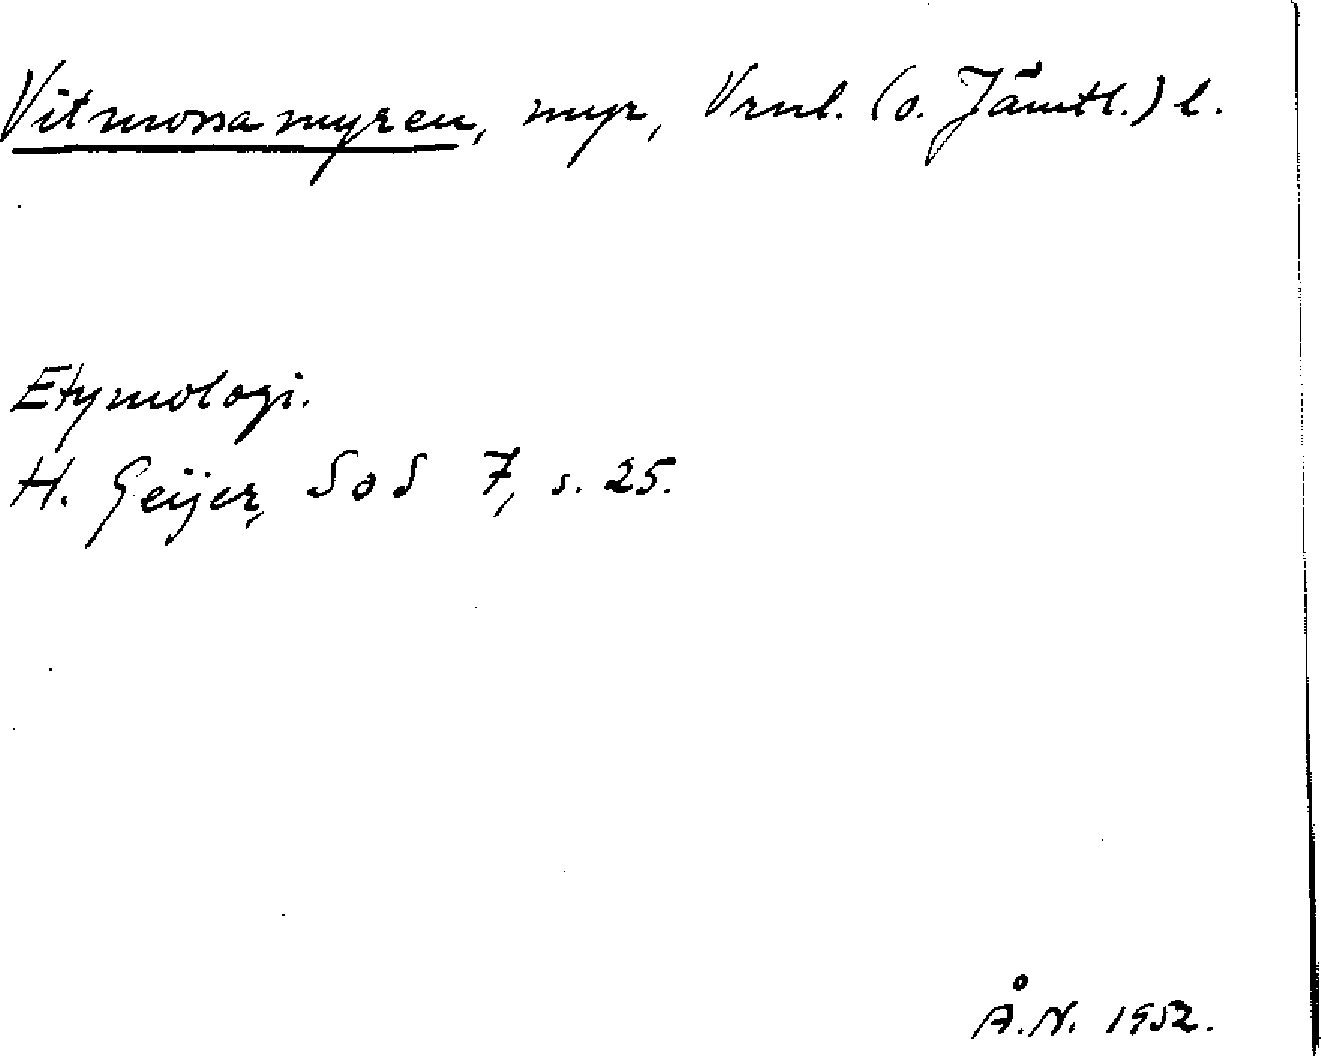 Vitmossamyren, myr, Vrml. (o. Jämtl.) l.
Etymologi.
H. Geijer, SoS 7, s. 25.
Å.N. 1952.